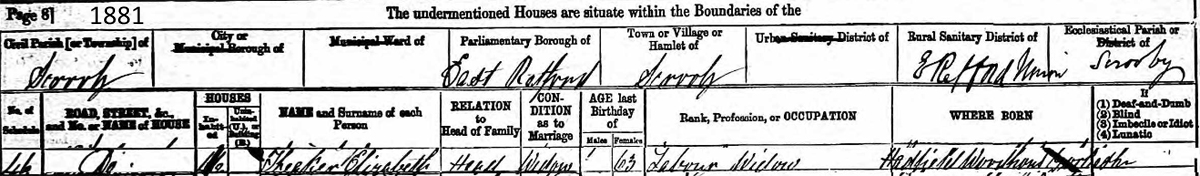 Page 8] 1881 The undermentioned Houses are situate within the Boundaries of the
Civil Parish [or Township] of City or Municipal Borough of Municipal Ward of Parliamentary Borough of Town or Village or Hamlet of Urban Sanitary District of Rural Sanitary District of Ecclesiastical Parish or District of
Scrooby East Retford Scrooby E Retford Union Scrooby
No. of Schedule ROAD, STREET, &c., and No. or NAME of HOUSE HOUSES Inhabited Uninhabited (U.), or Building (B.) NAME and Surname of each Person RELATION to Head of Family CONDITION as to Marriage AGE last Birthday of Males Females Rank, Profession, or OCCUPATION WHERE BORN If (1) Deaf-and-Dumb (2) Blind (3) Imbecile or Idiot (4) Lunatic
Do Elizabeth Head Widow 63 Labour Widow Hadfield Woodhouse